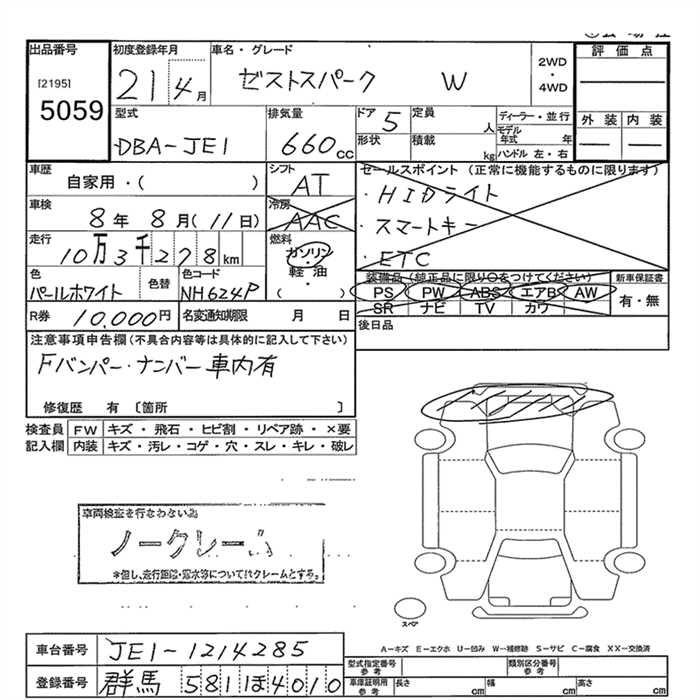 出品番号 初度登録年月 車名・グレード 評価点
[2195] 5059
21 4月 ゼストスパーク W
2WD・4WD
型式 排気量 ドア 定員 ディーラー・並行 外装 内装
DBA-JE1 660cc 5 人
形状 積載 kg
モデル年式 年
ハンドル 左・右
車歴 シフト セールスポイント (正常に機能するものに限ります)
自家用・( ) AT ・HIDライト
車検 冷房 ・スマートキー
8年8月(11日) AAC
走行 燃料 ・ETC
10万3千278km ガソリン・軽油 ( )
色 色替 色コード 装備品 (純正品に限り○をつけてください) 新車保証書
パールホワイト NH624P PS PW ABS エアB AW 有・無
SR ナビ TV カワ
R券 10,000円 名変通知期限 月 日
後日品
注意事項申告欄(不具合内容等は具体的に記入して下さい)
Fバンパー・ナンバー車内有
修復歴 有 〔箇所 〕
検査員 FW キズ・飛石・ヒビ割・リペア跡・×要
記入欄 内装 キズ・汚レ・コゲ・穴・スレ・キレ・破レ
車両検査を行なわない為
ノークレーム
*但し、走行距離・冠水等についてはクレームとする。
スペア
A－キズ E－エクボ U－凹み W－補修跡 S－サビ C－腐食 XX－交換済
車台番号 JE1-1214285
型式指定番号 参考 類別区分番号 参考
登録番号 群馬 581 ほ 4010
車庫証明用 参考 長さ cm 幅 cm 高さ cm